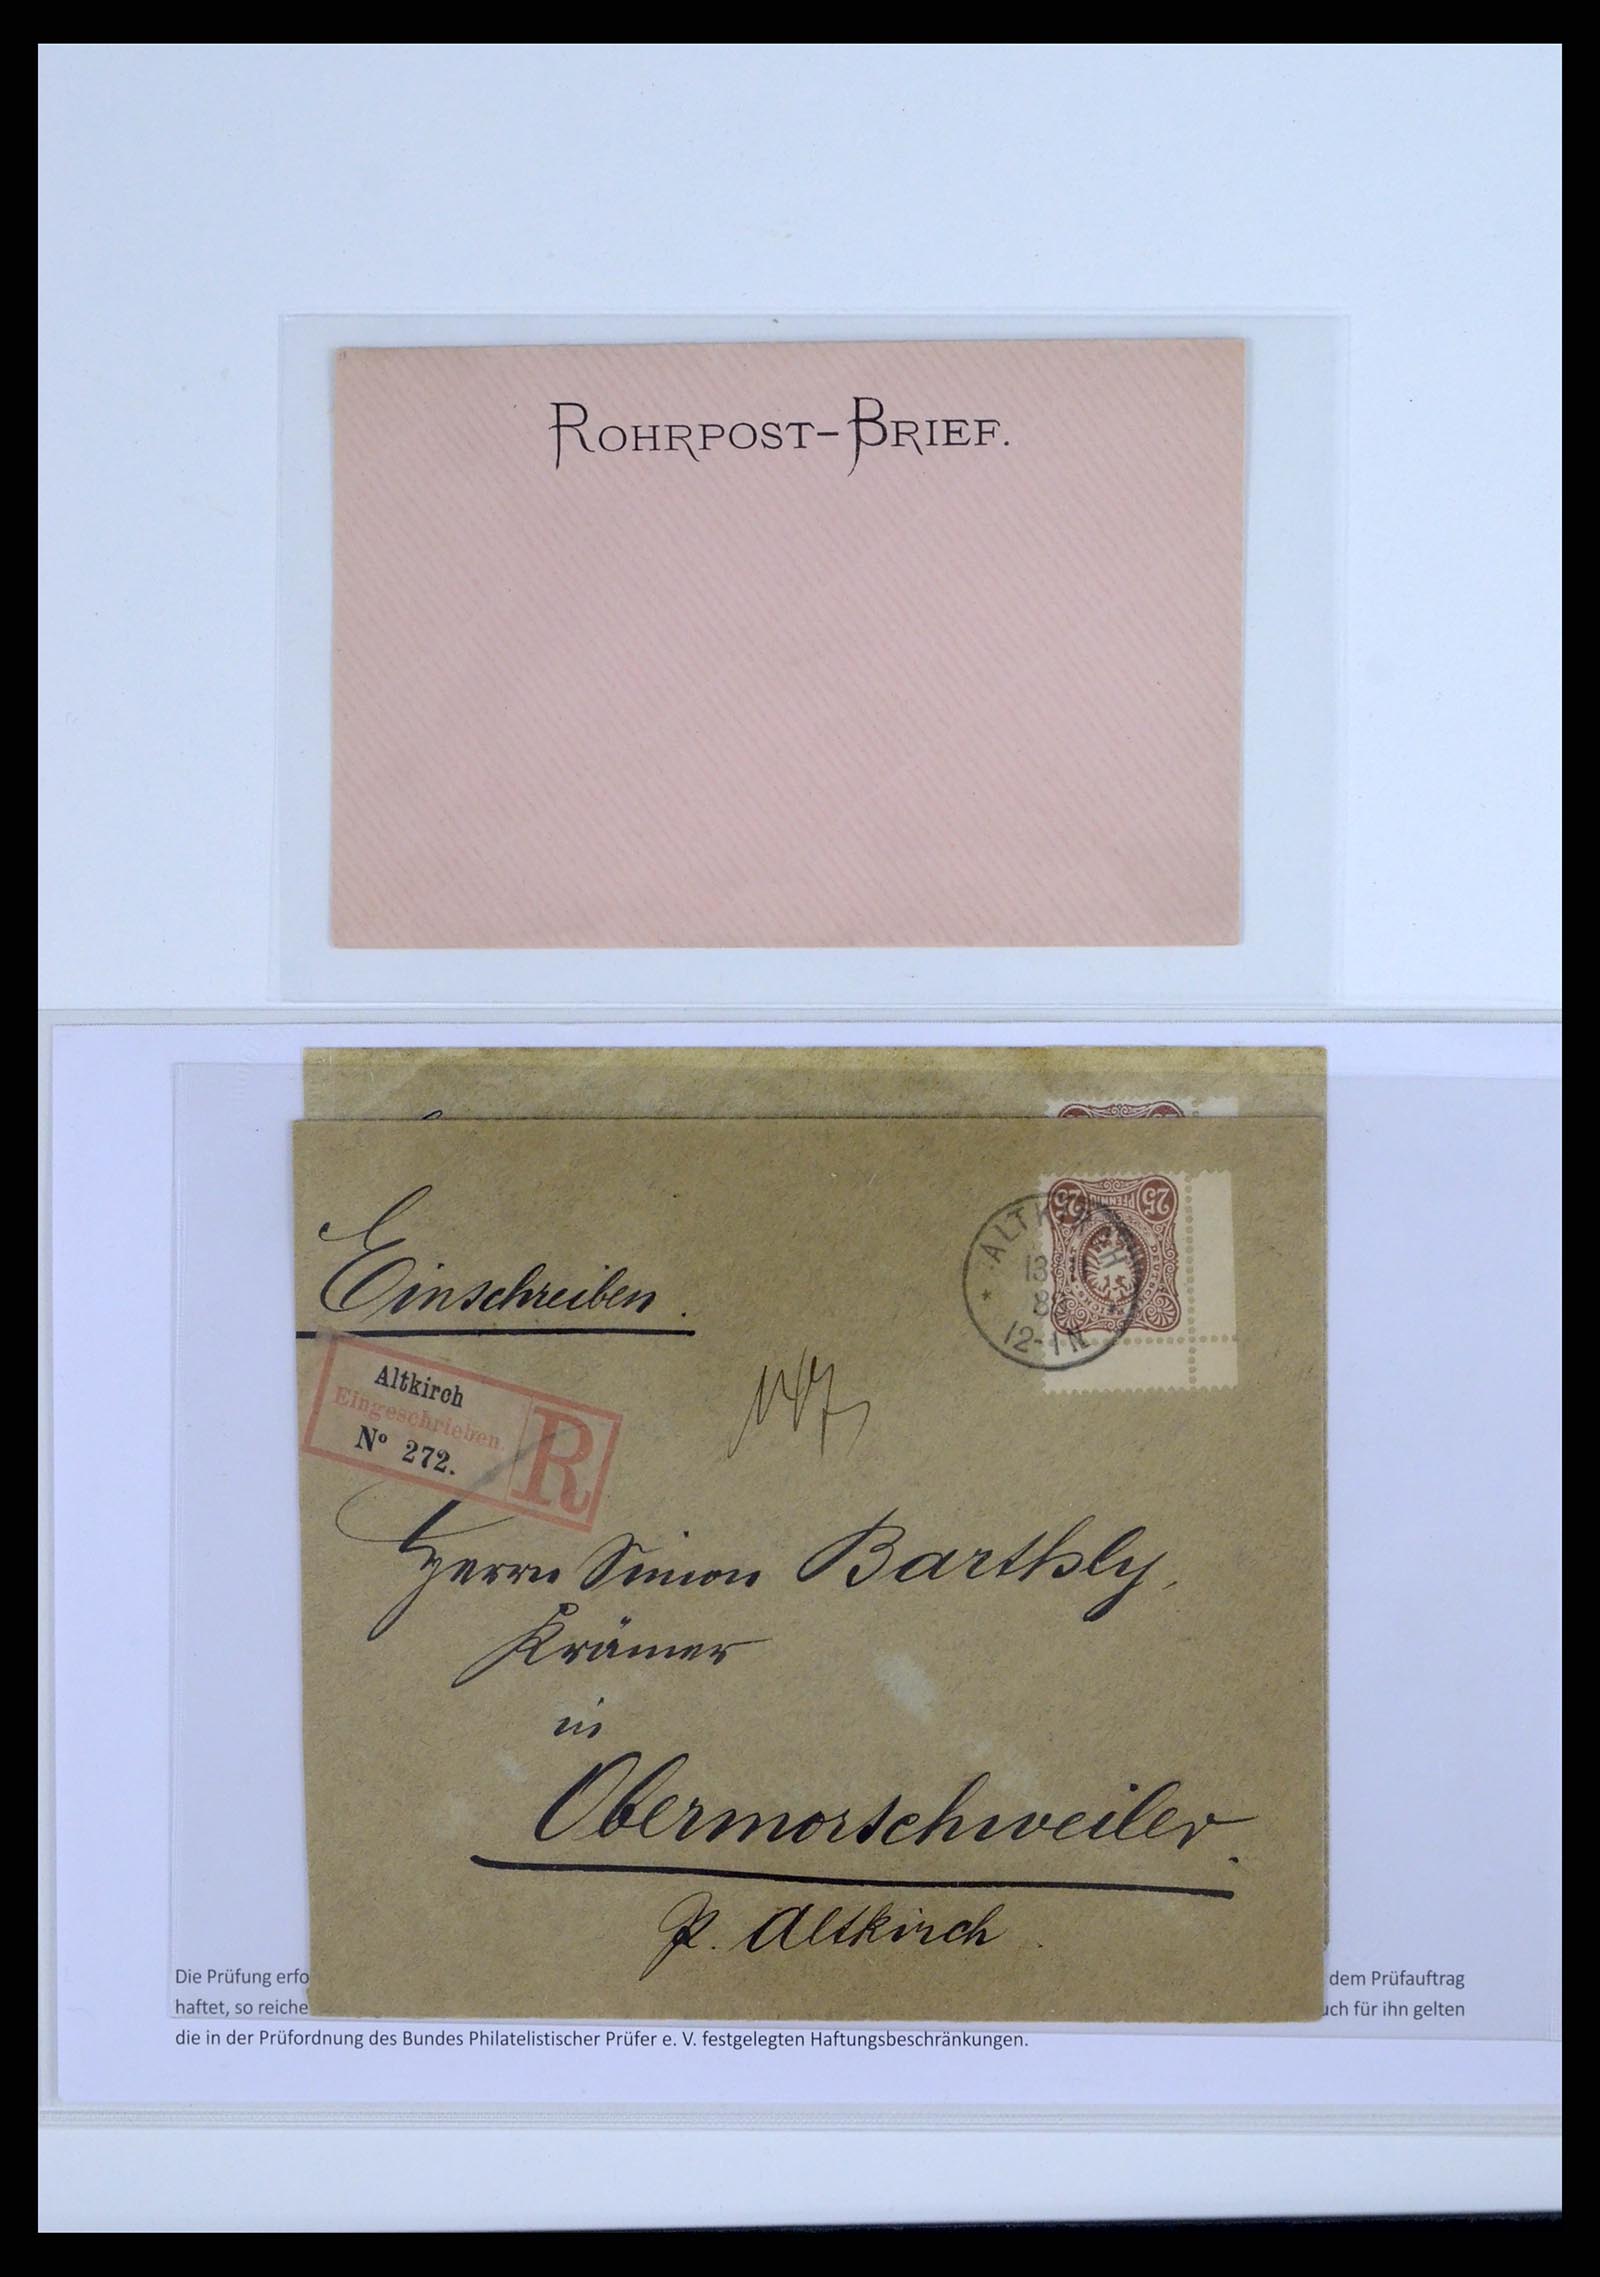 ROHRPOST-BRIEF.
25 25
PFENNIG
ALTKIRCH
13
8
12-1N
Einschreiben.
Altkirch
Eingeschrieben.
No 272.
R
147
Herrn Simon Barthly,
Krämer
in
Obermorschweiler.
p. Altkirch.
Die Prüfung erfo
dem Prüfauftrag
haftet, so reiche
uch für ihn gelten
die in der Prüfordnung des Bundes Philatelistischer Prüfer e. V. festgelegten Haftungsbeschränkungen.